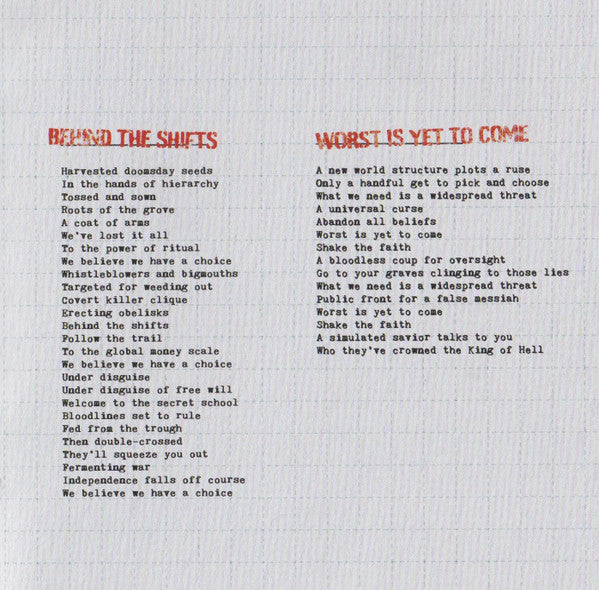 BEHIND THE SHIFTS
Harvested doomsday seeds
In the hands of hierarchy
Tossed and sown
Roots of the grove
A coat of arms
We've lost it all
To the power of ritual
We believe we have a choice
Whistleblowers and bigmouths
Targeted for weeding out
Covert killer clique
Erecting obelisks
Behind the shifts
Follow the trail
To the global money scale
We believe we have a choice
Under disguise
Under disguise of free will
Welcome to the secret school
Bloodlines set to rule
Fed from the trough
Then double-crossed
They'll squeeze you out
Fermenting war
Independence falls off course
We believe we have a choice
WORST IS YET TO COME
A new world structure plots a ruse
Only a handful get to pick and choose
What we need is a widespread threat
A universal curse
Abandon all beliefs
Worst is yet to come
Shake the faith
A bloodless coup for oversight
Go to your graves clinging to those lies
What we need is a widespread threat
Public front for a false messiah
Worst is yet to come
Shake the faith
A simulated savior talks to you
Who they've crowned the King of Hell